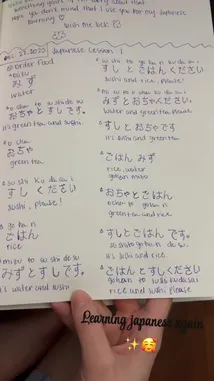 Hope you don't mind that I use you for my Japanese
learning ♡
wish me luck
Dec. 29. 2020 | Japanese Lesson 1
@ order food
misu
みず
water
o cha to su shi de su
おちゃとすしです。
it's green tea and sushi
o cha
おちゃ
green tea
su shi ku da sa i
すしください
sushi, please!
go ha n
ごはん
rice
mizu to su shi de su
みずとすしです。
it's water and sushi
su shi to go ha n ku da sa i
すしとごはんください
sushi and rice, please!
mi zu to o cha ku da sa i
みずとおちゃください。
water and green tea, please!
すしとおちゃです
it's sushi and green tea
ごはん、みず
rice, water
gohan mizu
おちゃとごはん
ocha to gohan
green tea and rice
すしとごはんです。
sushi to gohan desu.
it's sushi and rice.
ごはんとすしください
gohan to sushi kudasai
rice and sushi please
Learning japanese again
✨🥰